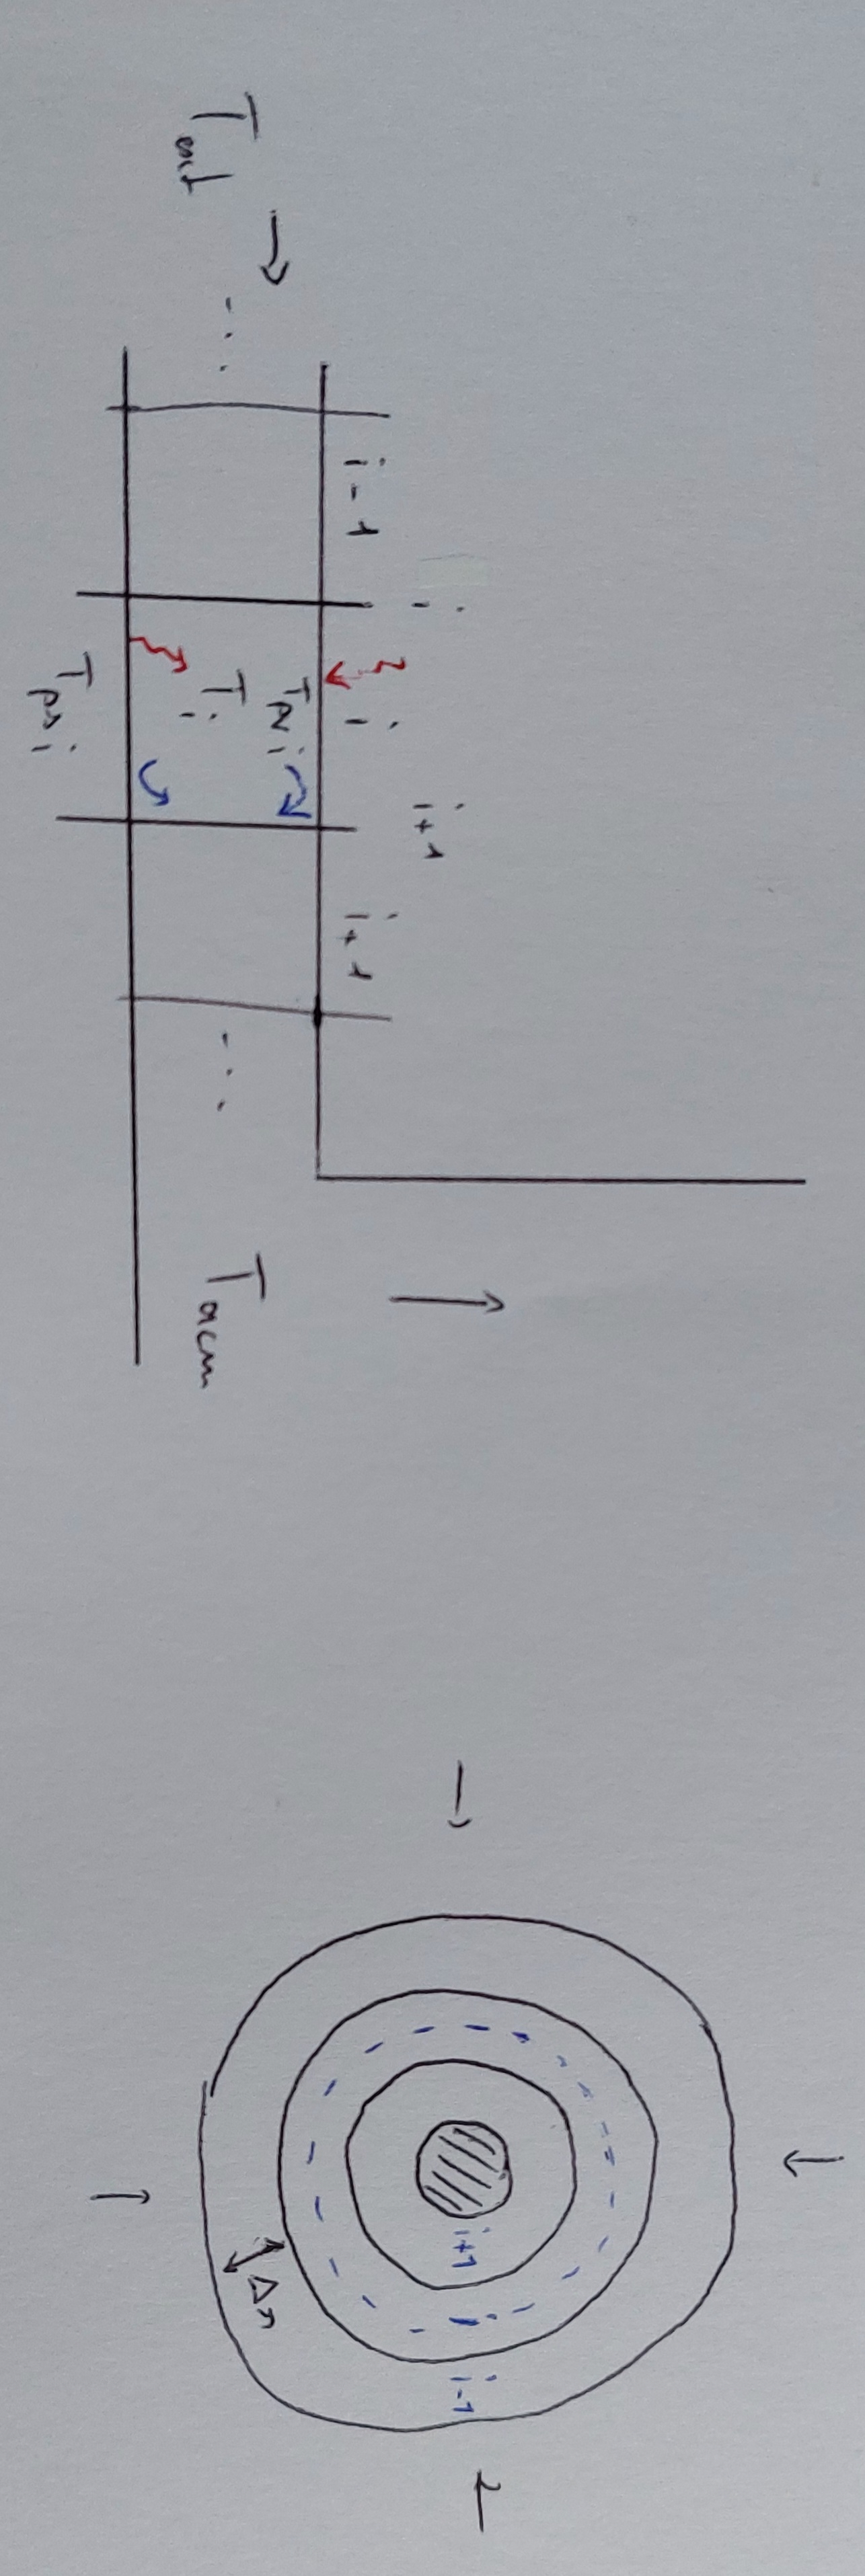 i
i+1
i-1
i
i+1
T_pvi
T_ext
...
T_i
...
T_acm
T_psi
i+1
i
i-1
Δr